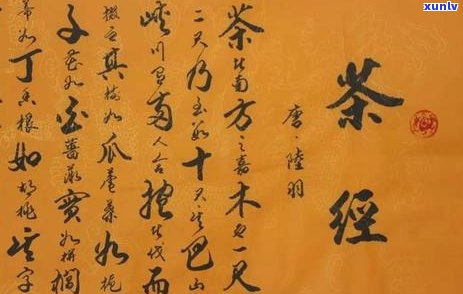 茶經
唐·陸羽
茶者南方之嘉木也一尺
二尺乃至數十尺其巴山
峽川有兩人合抱者伐而
掇之其樹如瓜蘆葉如梔
子花如白薔薇實如栟櫚
蒂如丁香根如胡桃其字
xunlv